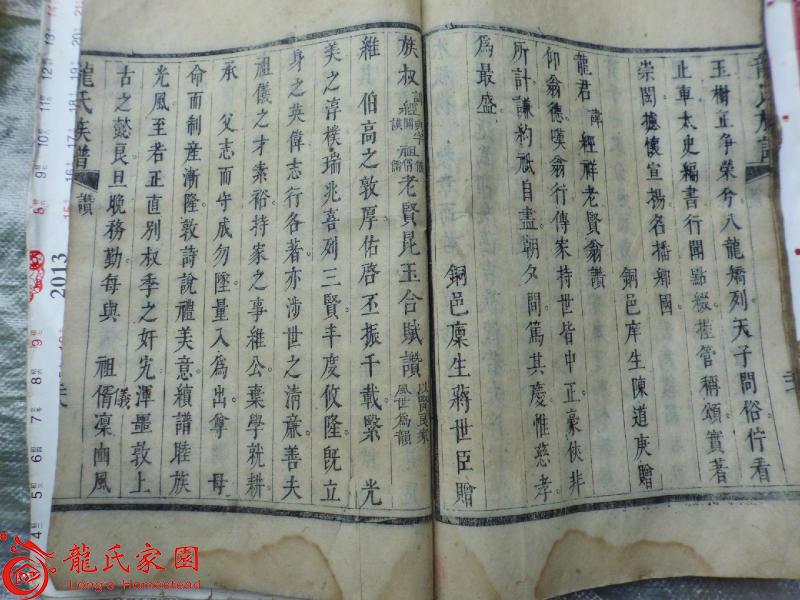 玉樹並爭榮兮八龍矯列天子問俗佇看
止車太史編書行閱點綴搓管稱頌實著
崇閎攄懷宣揚名播鄉國
銅邑庠生陳道庚贈
龍君諱經祥老賢翁讚
仰翁德嘆翁行傳家持世皆中正豪俠非
所計謙約祗自盡朝夕間篤其慶惟慈孝
為最盛
銅邑廩生蔣世臣贈
族叔 經 祖 老賢昆玉合賦讚以賢良家風世為韻
維 伯高之敦厚佑啓丕振千載緊 光
美之淳樸瑞兆喜列三賢丰度攸隆既立
身之英偉志行各著亦涉世之清廉善夫
祖儀之才素裕持家之事維公棄學就耕
承 父志而守成勿墜量入為出尊 母
命而制產漸隆敦詩說禮美意績譜睦族
光風至若正直別叔季之奸宄渾噩敦上
古之懿良旦晚務勤每與 祖 儀 偦凛幽風
龍氏族譜
讚
龍氏族譜
龍氏家園
Long's Homestead
2013